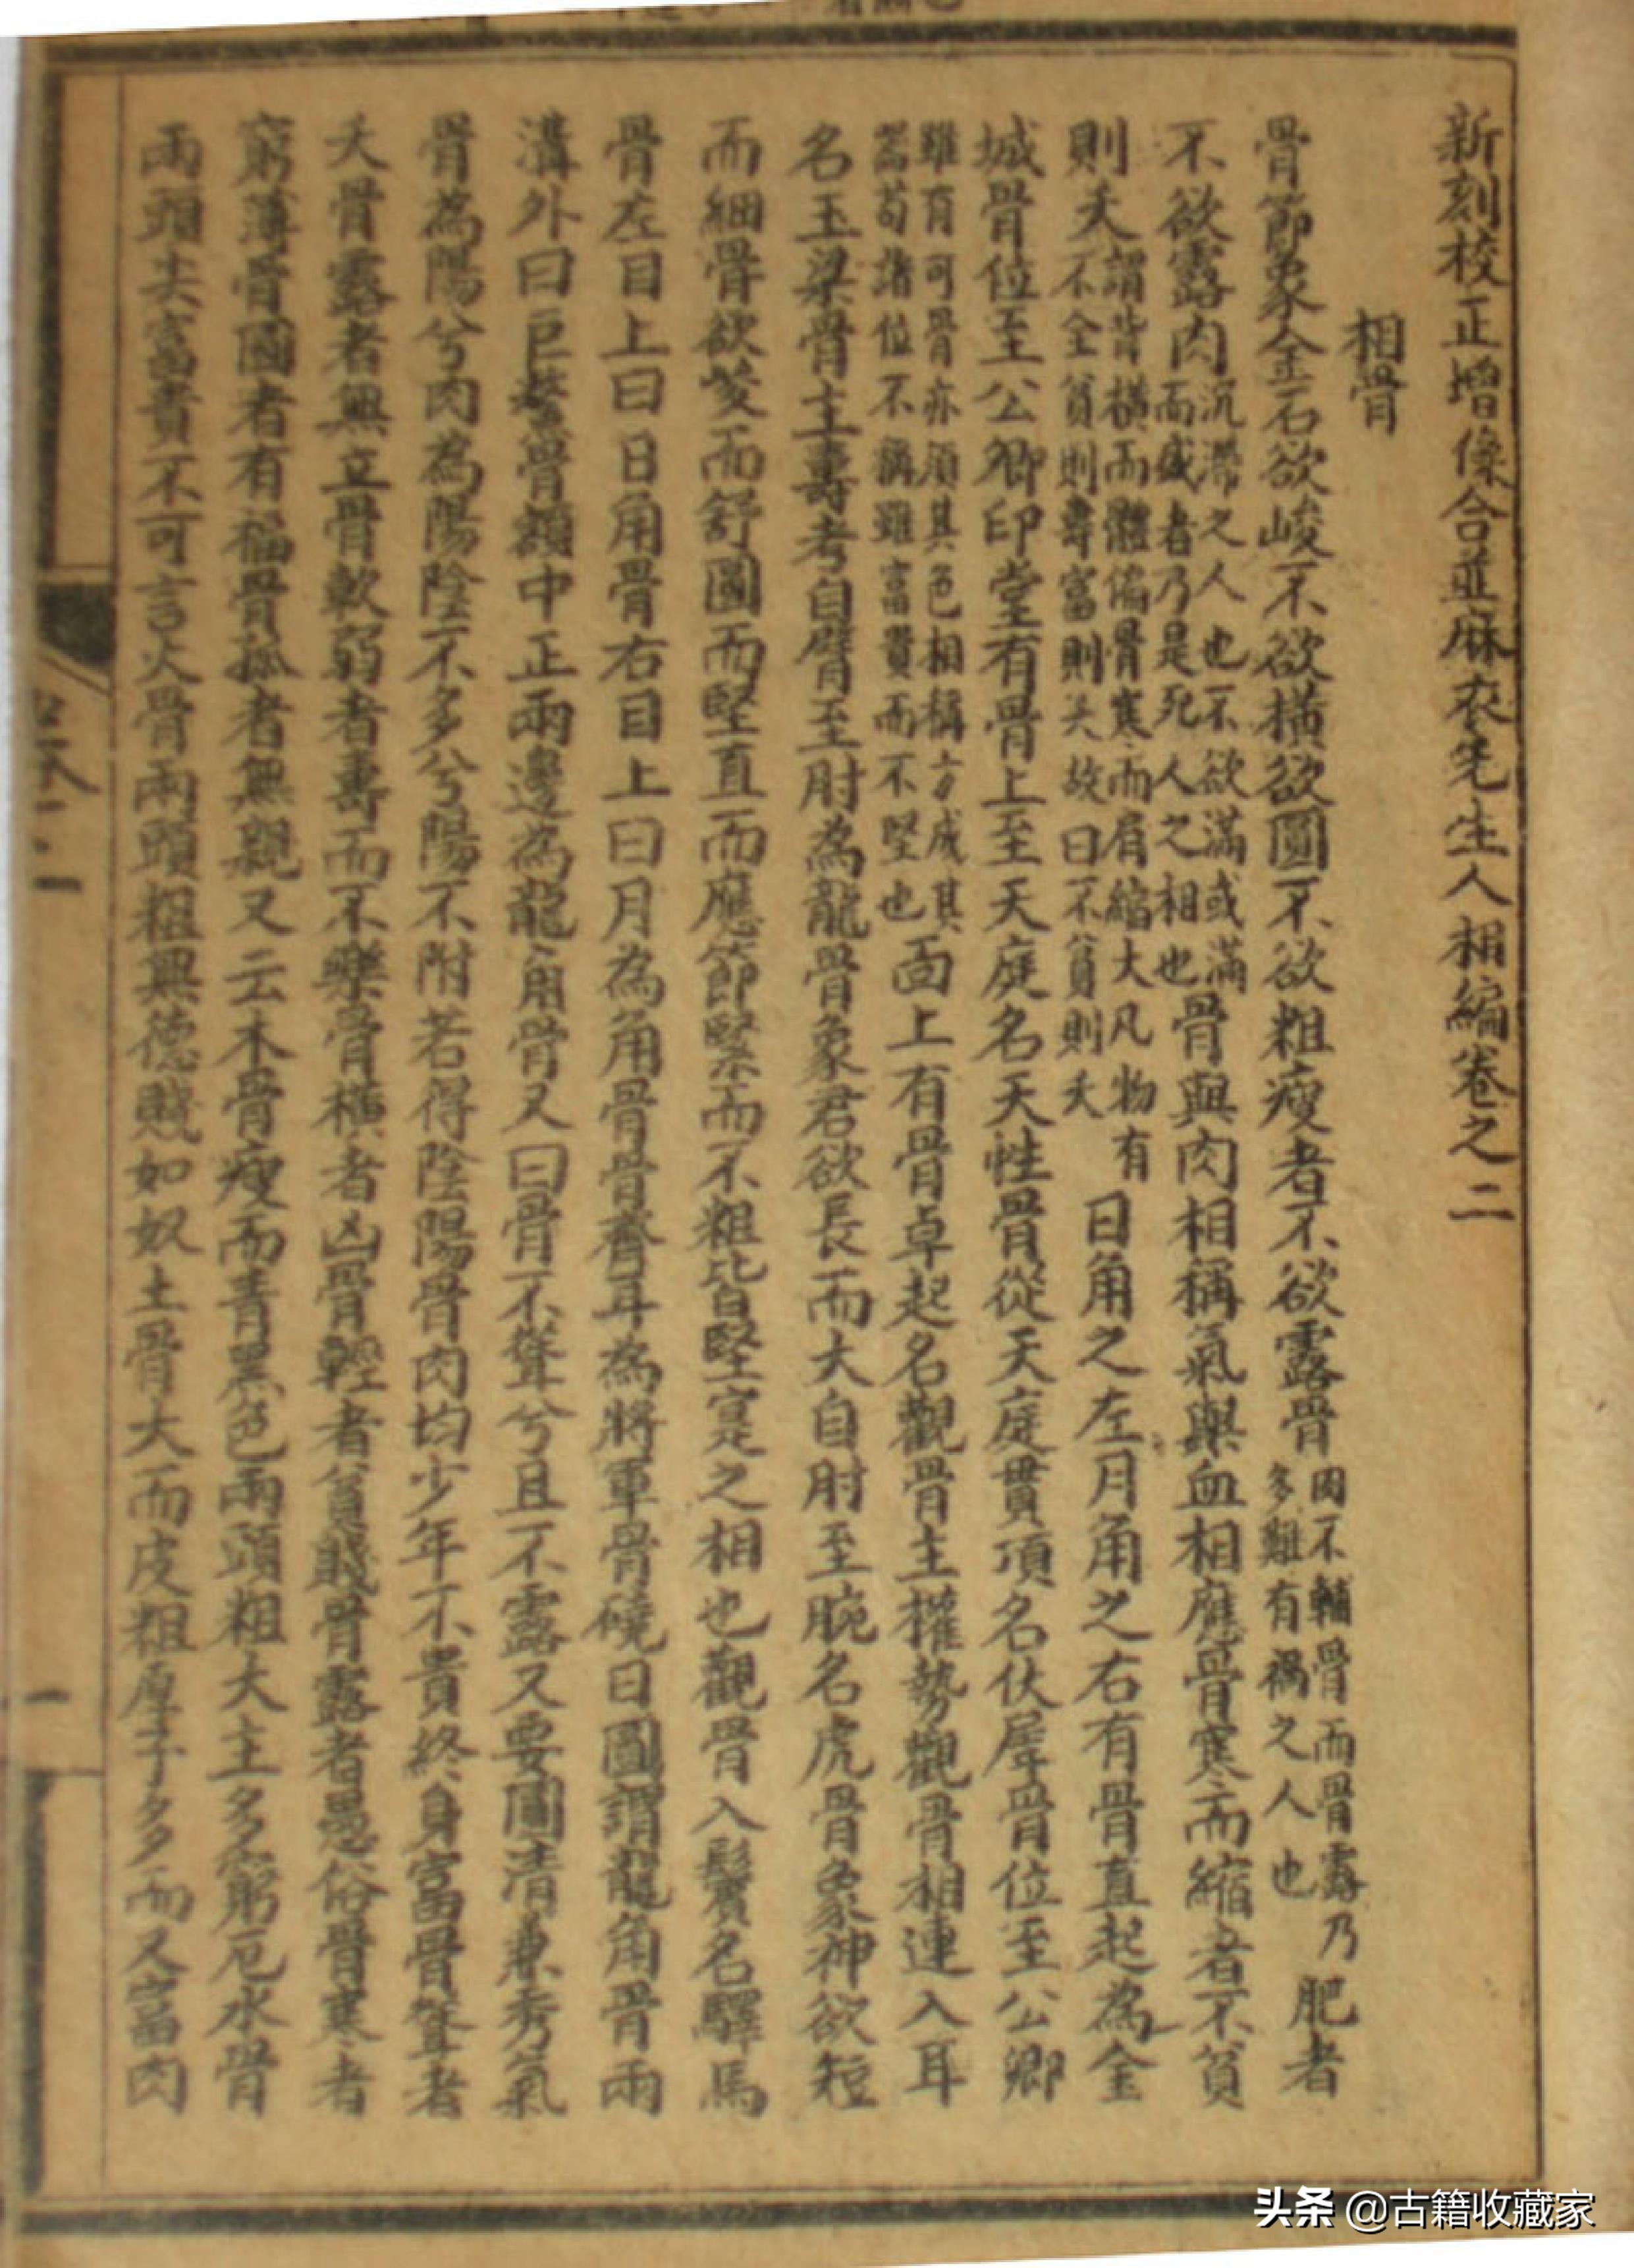 新刻校正增像合並麻衣先生人相編卷之二
相骨
骨節象金石欲峻不欲橫欲圓不欲粗瘦者不欲露骨肉不輔骨而骨露乃多難有禍之人也肥者
不欲露肉沉滯之人也不欲滿或滿而盛者乃是死人之相也骨與肉相稱氣與血相應骨寒而縮者不貧
則夭謂背橫而體偏骨寒而肩縮大凡物有不全貧則壽富則夭故曰不貧則夭日角之左月角之右有骨直起為金
城骨位至公卿印堂有骨上至天庭名天性骨從天庭貫項名伏犀骨位至公卿
雖有可骨亦須其色相稱方成其器苟諸位不稱雖富貴而不堅也面上有骨卓起名觀骨主權勢觀骨相連入耳
名玉梁骨主壽考自臂至肘為龍骨象君欲長而大自肘至腕名虎骨象神欲短
而細骨欲峻而舒圓而堅直而應節緊而不粗皆堅寔之相也觀骨入鬢名驛馬
骨左目上曰日角骨右目上曰月為角骨骨齊耳為將軍骨磽日圓謂龍角骨兩
溝外曰巨鰲骨額中正兩邊為龍角骨又曰骨不聳兮且不露又要圓清兼秀氣
骨為陽兮肉為陽陰不多兮陽不附若得陰陽骨肉均少年不貴終身富骨聳者
夭骨露者無立骨軟弱者壽而不樂骨橫者凶骨輕者貧賤骨露者愚俗骨寒者
窮薄骨圓者有福骨孤者無親又云木骨瘦而青黑色兩頭粗大主多窮厄水骨
兩頭尖富貴不可言火骨兩頭粗無德賤如奴土骨大而皮粗厚子多而又富肉
卷二
一
头条 @古籍收藏家